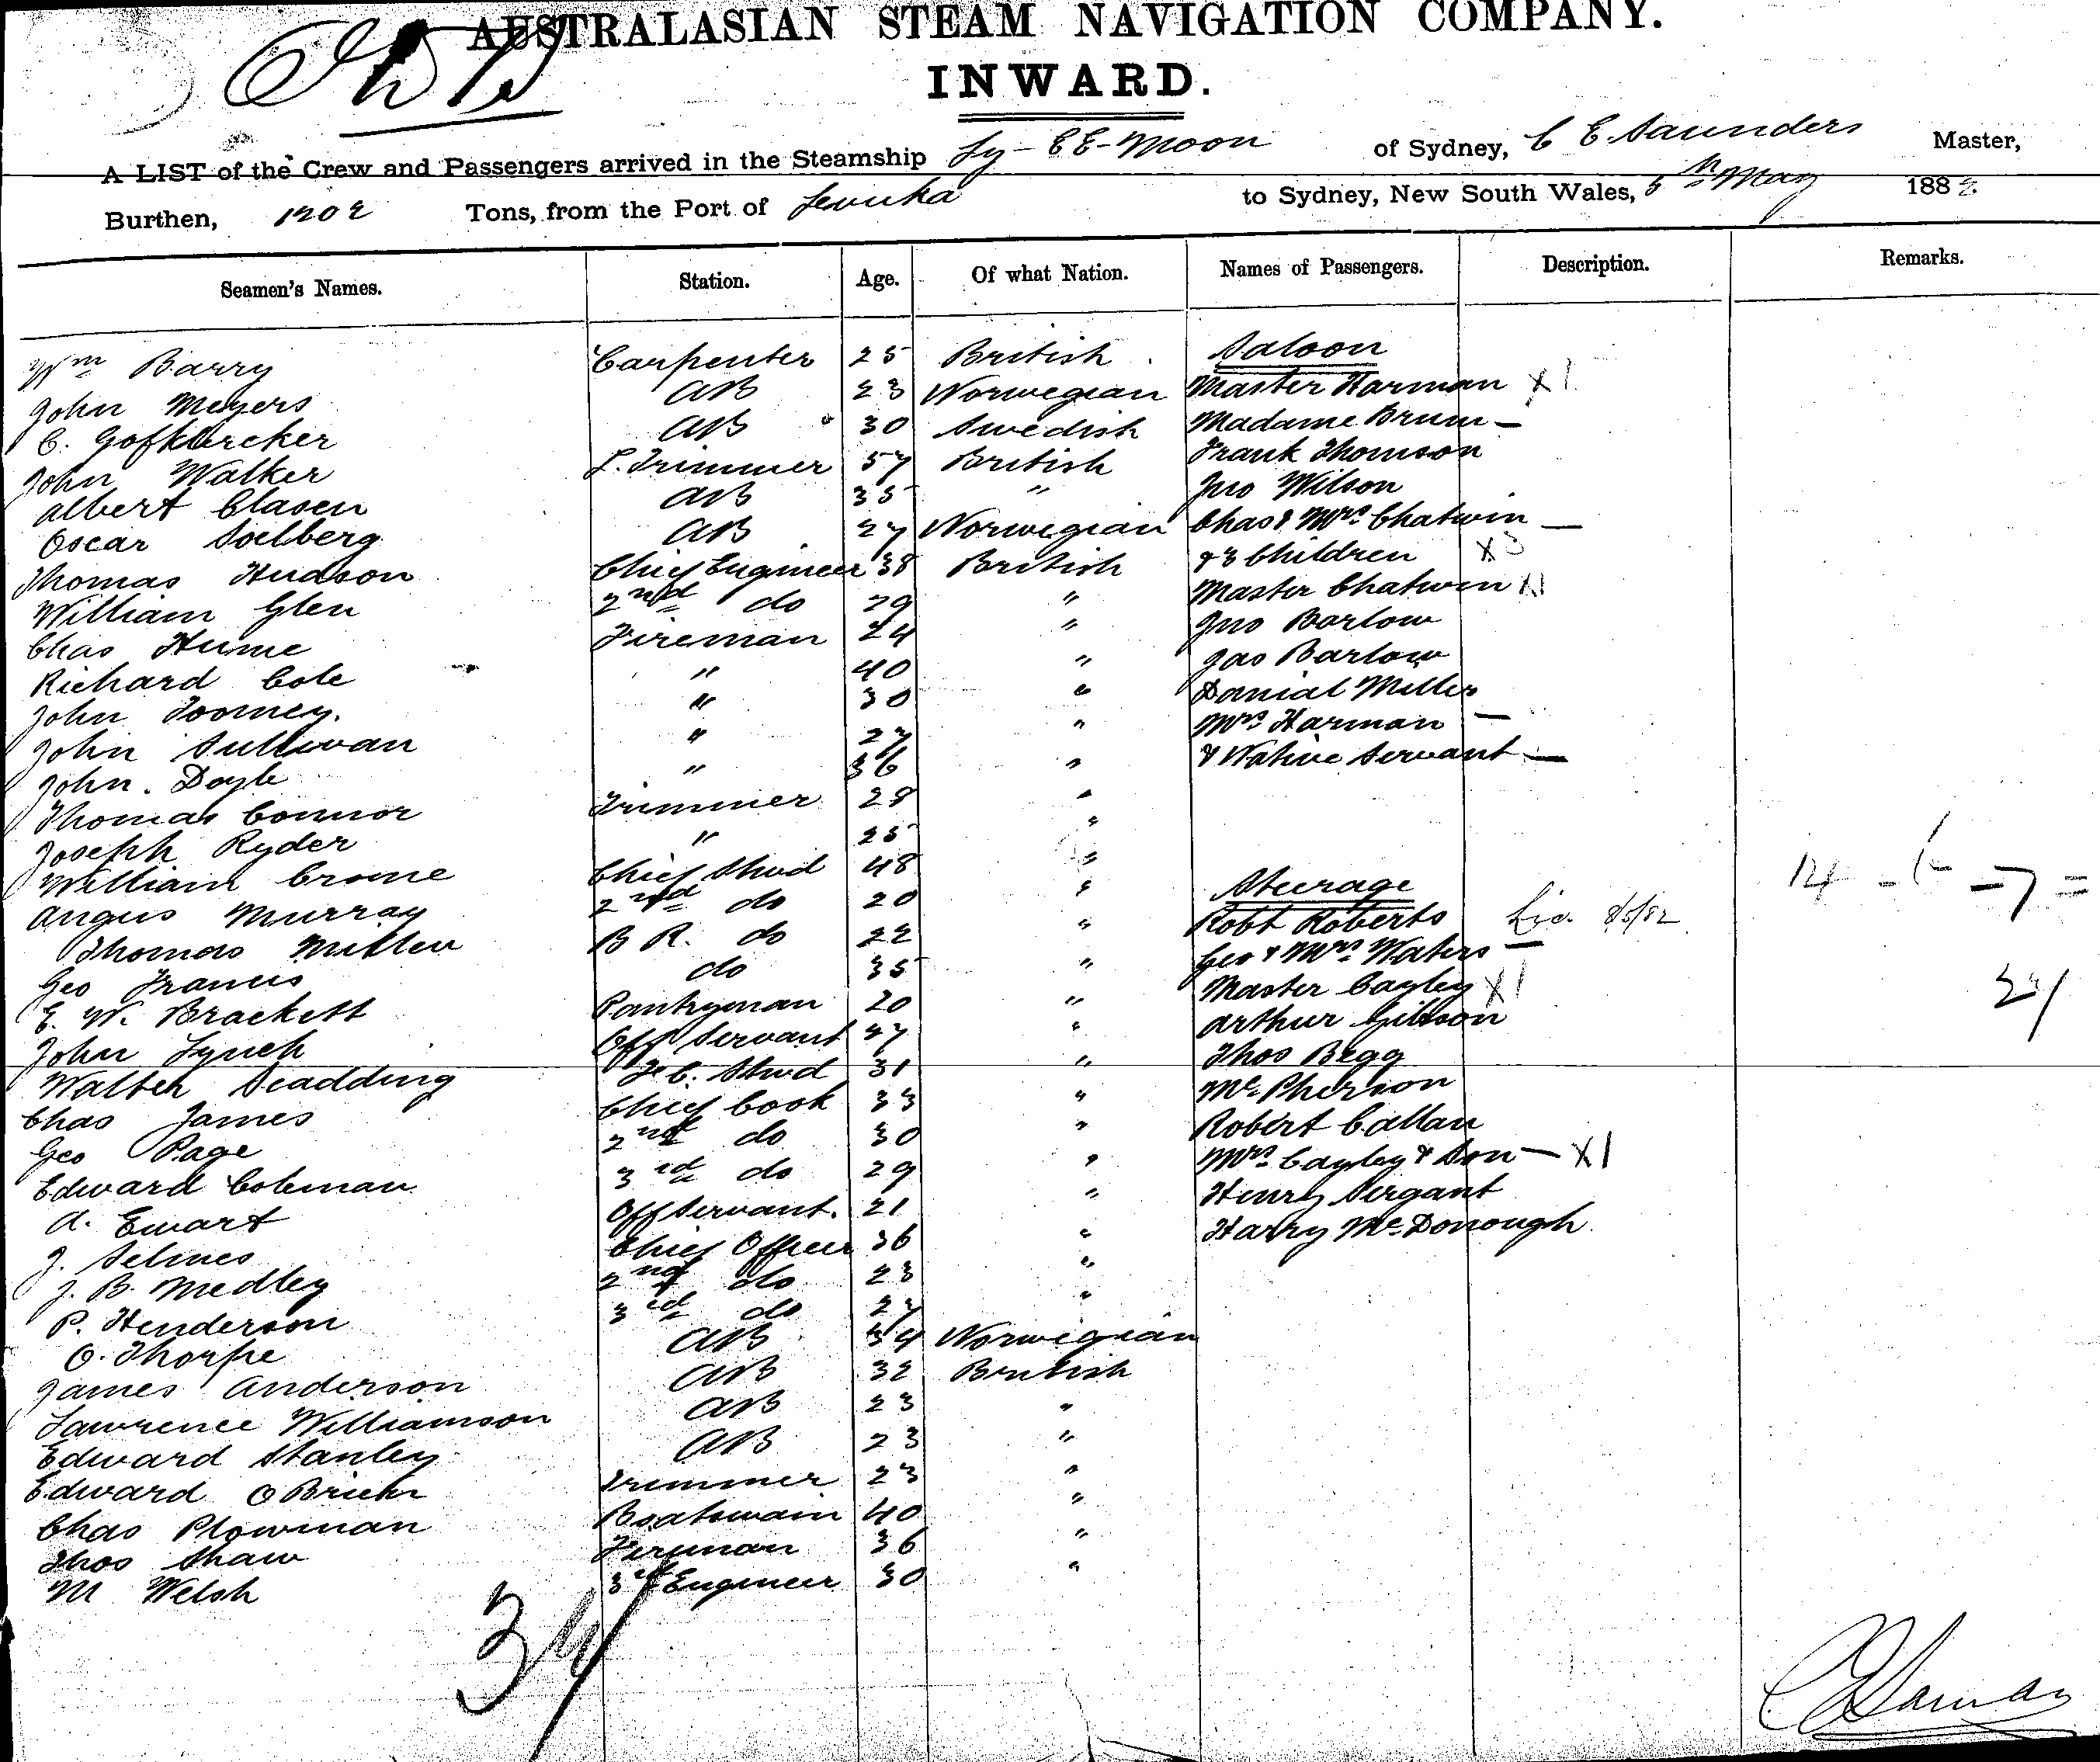 AUSTRALASIAN STEAM NAVIGATION COMPANY.
INWARD.
A LIST of the Crew and Passengers arrived in the Steamship Ly-EE-Moon of Sydney, C E. Saunders Master,
Burthen, 1202 Tons, from the Port of Levuka to Sydney, New South Wales, 5th May 1882
Seamen's Names. Station. Age. Of what Nation. Names of Passengers. Description. Remarks.
Wm Barry Carpenter 25 British Saloon
John Meyers AB 23 Norwegian Master Harman X 1
C. AB 30 Swedish Madame Brum —
John Walker L. Trimmer 57 British Frank Thomson
Albert Clasen AB 35 " Jno Wilson
Oscar Soelberg AB 27 Norwegian Chas & Mrs Chatwin —
Thomas Hudson Chief Engineer 38 British & 3 Children X 3
William Glen 2nd do 29 " Master Chatwin
Chas Hume Fireman 24 " Jno Barlow
Richard Cole " 40 " Jas Barlow
John Toomey. " 30 " Danial Miller
John Sullivan " 27 " Mrs Harman —
John. Doyle " 36 " & Native Servant —
Thomas Connor Trimmer 28 "
Joseph Ryder " 25 "
William Crome Chief Stwd 48 " Steerage
Angus Murray 2nd do 20 " Robt Roberts 8/5/82
Thomas Miller B R. do 22 " Geo & Mrs Waters —
Geo Francis do 35 " Master Cayley X 1
E. W. Brackett Pantryman 20 " Arthur Gibson
John Lynch Off Servant 27 " Thos Begg
Walter Scadding F. C. Stwd 31 " McPherson
Chas James Chief Cook 33 " Robert Callan
Geo Page 2nd do 30 " Mrs Cayley & Son — X 1
Edward Coleman 3rd do 29 " Henry Sergant
A. Ewart Off Servant. 21 " Harry McDonough
J. Selmes Chief Officer 36 "
J. B. Medley 2nd do 23 "
P. Henderson 3rd do 27 "
O. Thorpe AB 34 Norwegian
James Anderson AB 32 British
Lawrence Williamson AB 23 "
Edward Stanley AB 23 "
Edward OBrien Trimmer 23 "
Chas Plowman Boatswain 40 "
Thos Shaw Fireman 36 "
M Welsh 3rd Engineer 30 "